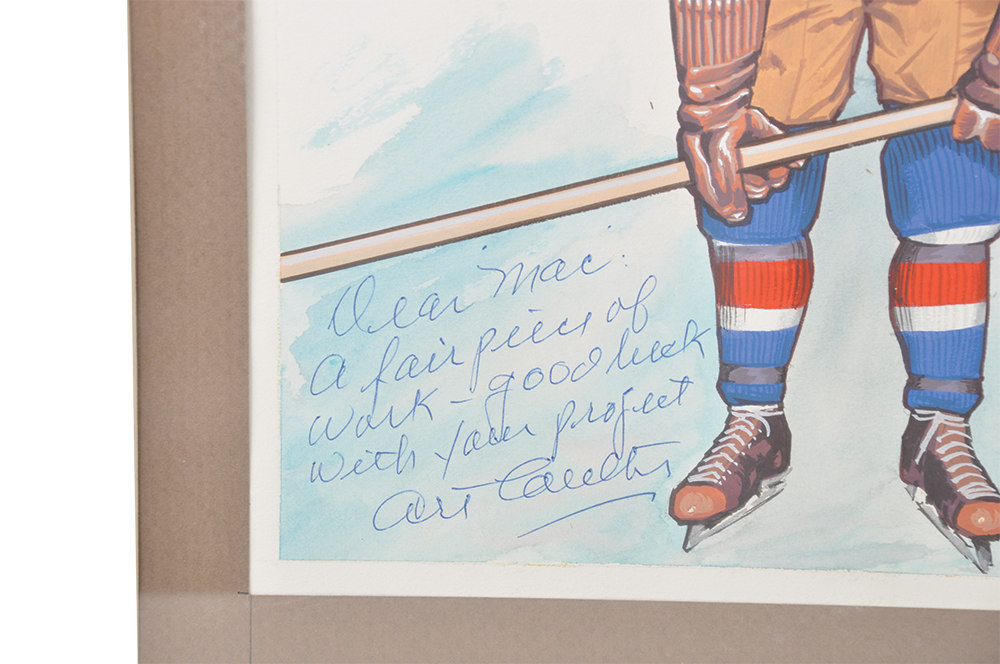 Dear Mac:
A fair piece of
work – good luck
with your project
Art Coulter